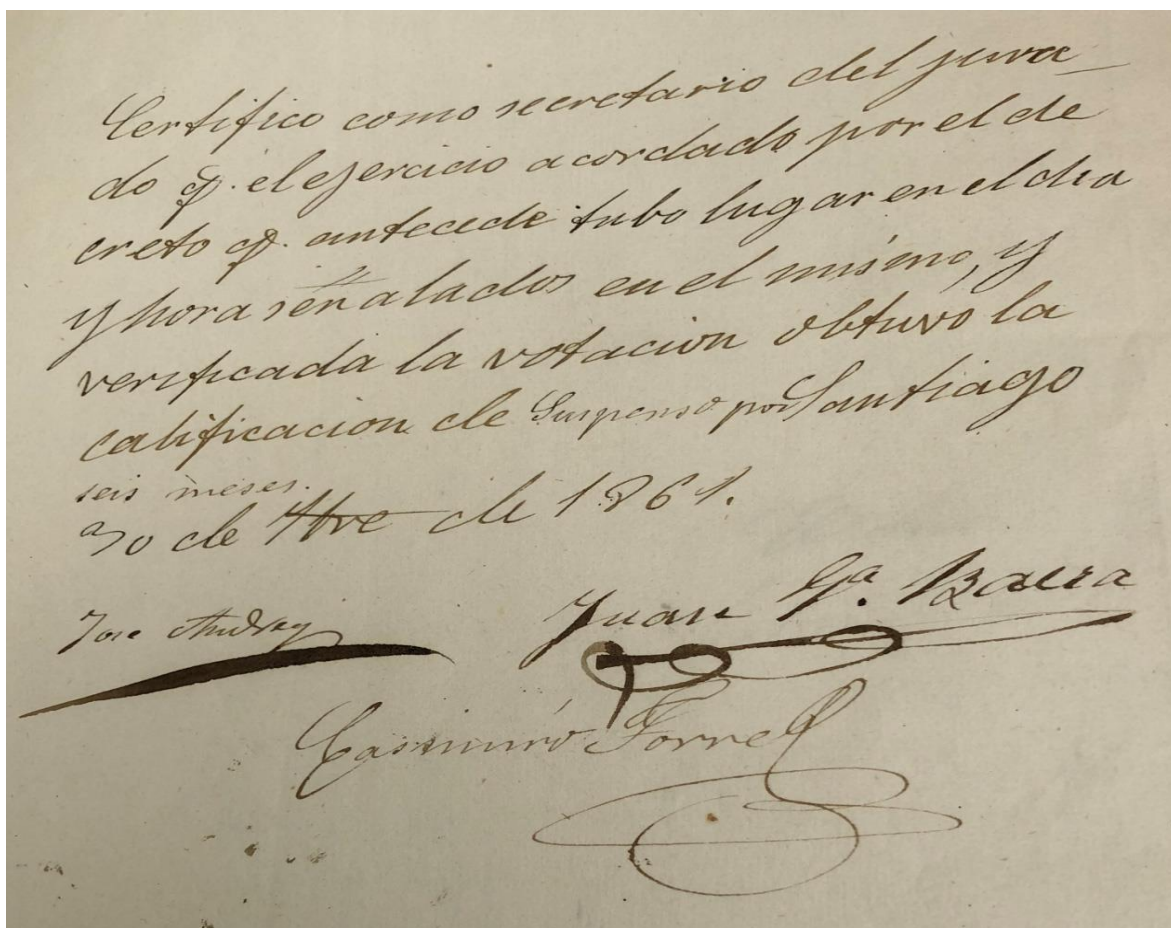 Certifico como secretario del jura
do q. el ejercicio acordado por el de
creto q. antecede tubo lugar en el dia
y hora señalados en el mismo, y
verificada la votacion obtuvo la
calificacion de Suspenso por Santiago
seis meses.
30 de de 1861.
Jose Juan Gª. Baeza
Casimiro Torre